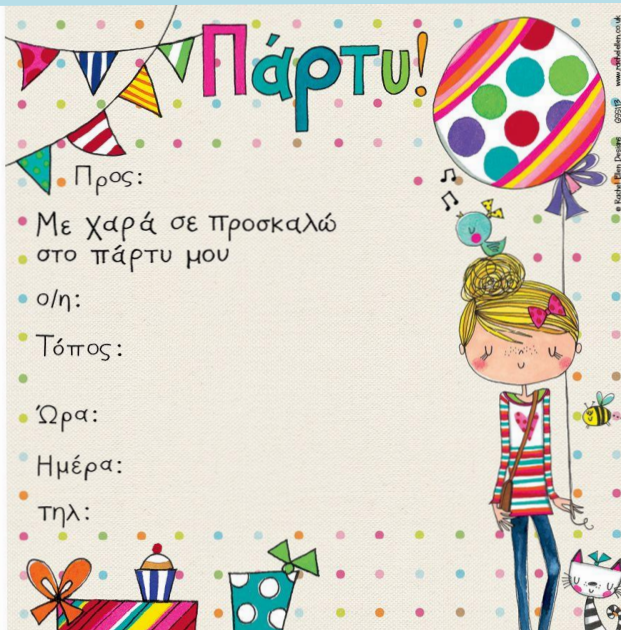 Πάρτυ!
Προς:
Με χαρά σε προσκαλώ
στο πάρτυ μου
ο/η:
Τόπος:
Ώρα:
Ημέρα:
τηλ:
© Rachel Ellen Designs G99S113 www.rachelellen.co.uk